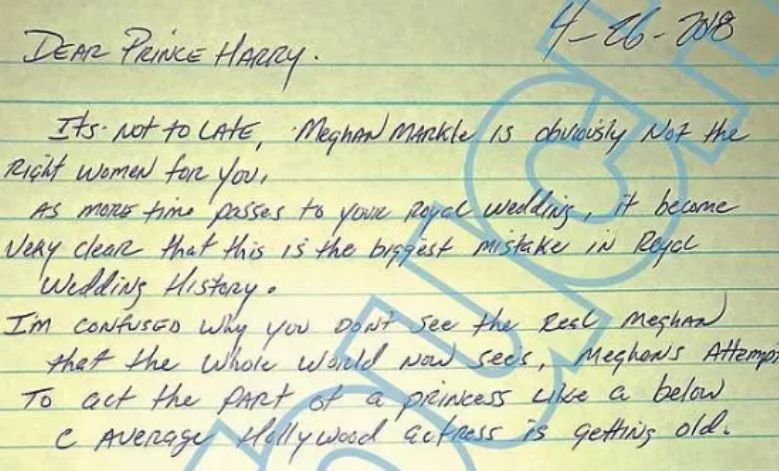 4-26-2018
DEAR PRINCE HARRY.
Its not to LATE, MeghAN MARKle is obviously Not the
Right women for you,
As more time passes to your Royal wedding, it become
Very clear that this is the biggest mistake in Royal
Wedding History.
I'm confused why you DON'T see the Real Meghan
that the whole world now see's, Meghan's Attempt
To act the PART of a princess like a below
C AVERAGE Hollywood actress is getting old.